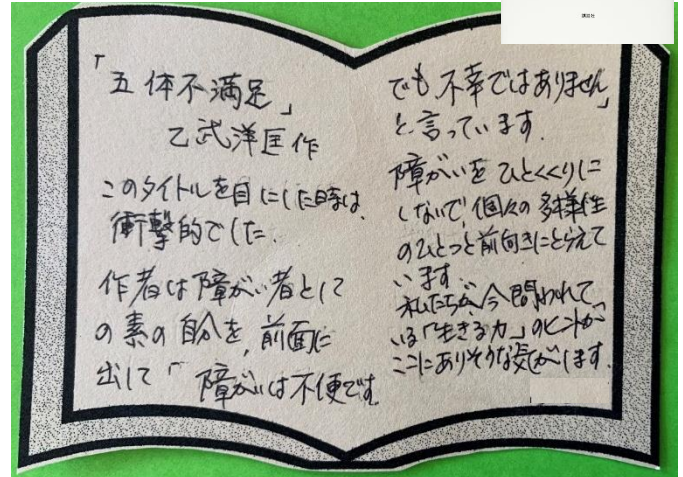 「五体不満足」
乙武洋匡作
このタイトルを目にした時は、
衝撃的でした。
作者は障がい者として
の素の自分を、前面に
出して「障がいは不便です
でも不幸ではありません」
と言っています。
障がいをひとくくりに
しないで、個々の多様性
のひとつと前向きにとらえて
います。
私たちが、今問われて
いる「生きる力」のヒントが
ここにありそうな気がします。
講談社